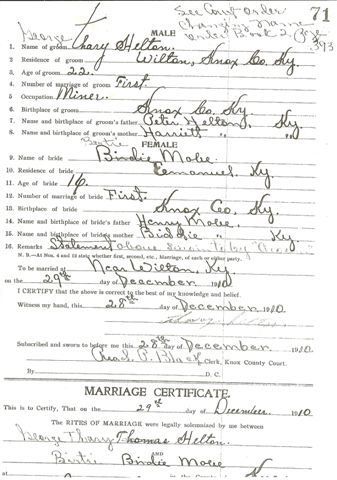 See Court order 71
Changing Name
order Book 2, Page 393
George MALE
1. Name of groom Thary Helton
2. Residence of groom Wilton, Knox Co. Ky.
3. Age of groom 22.
4. Number of marriage of groom First.
5. Occupation Miner.
6. Birthplace of groom Knox Co, Ky.
7. Name and birthplace of groom's father Peter Helton, Ky.
8. Name and birthplace of groom's mother Harriett " "
Bertie FEMALE
9. Name of bride Birdie Mobe
10. Residence of bride Emanuel, Ky
11. Age of bride 16.
12. Number of marriage of bride First.
13. Birthplace of bride Knox Co, Ky
14. Name and birthplace of bride's father Henry Mobe,
15. Name and birthplace of bride's mother Biddie Ky
16. Remarks Statement above sworn to by
N. B.—At Nos. 4 and 12 state whether first, second, etc., marriage, of each or either party.
To be married at Near Wilton, Ky.
on the 29th day of December 1910
I CERTIFY that the above is correct to the best of my knowledge and belief.
Witness my hand, this 28th day of December 1910
Subscribed and sworn to before me this 28th day of December, 1910
Chas. P. Black Clerk, Knox County Court.
By D. C.
MARRIAGE CERTIFICATE.
This is to Certify, That on the 29th day of December, 1910
The RITES OF MARRIAGE were legally solemnized by me between
George Thary Thomas Helton.
AND
Birtie Birdie Mobe
at